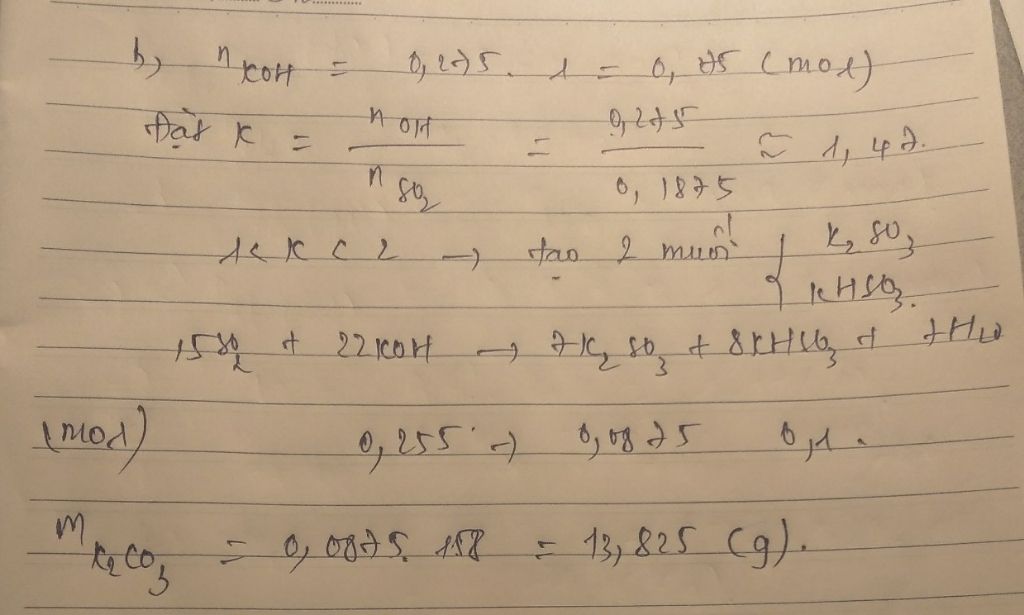 b, n KOH = 0,275 . 1 = 0,275 (mol)
Đặt K = n OH / n SO2 = 0,275 / 0,1875 ≈ 1,47.
1 < K < 2 → tạo 2 muối { K2SO3
KHSO3.
15SO2 + 22KOH → 7K2SO3 + 8KHSO3 + 7H2O
(mol) 0,255 → 0,0875 0,1.
m K2CO3 = 0,0875. 158 = 13,825 (g).